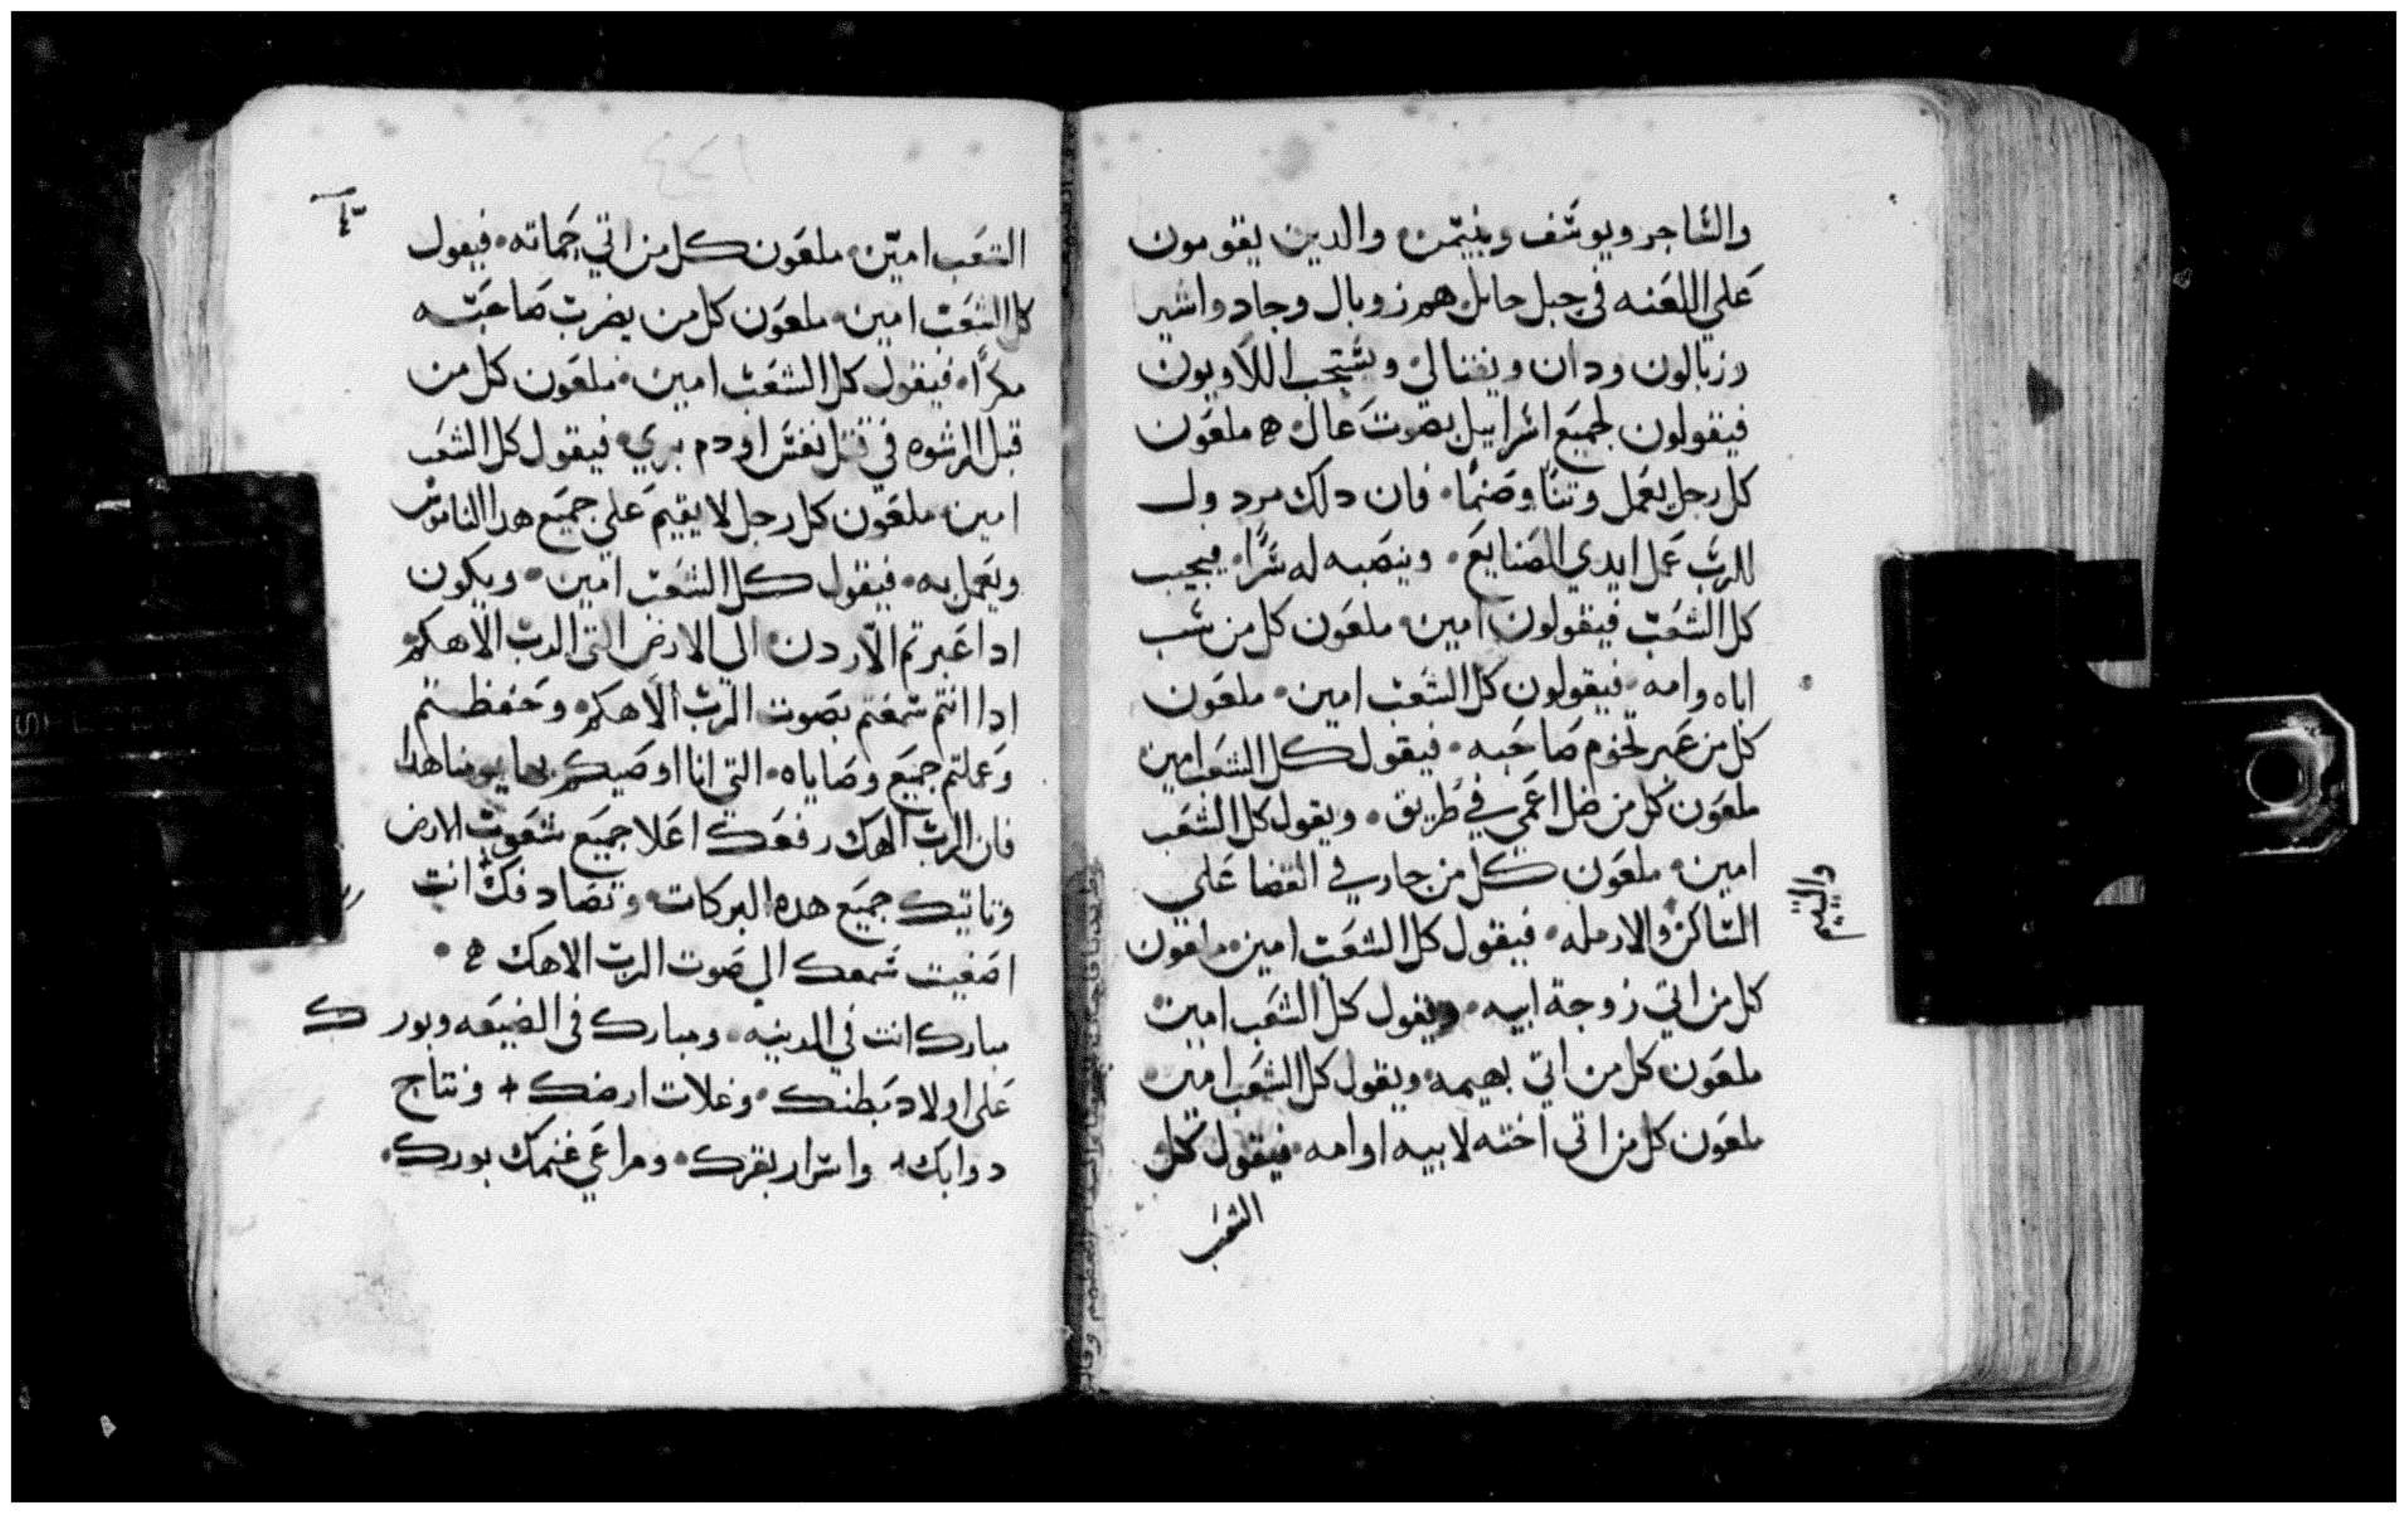 والساجر ويوسف وبنيمن والدين يقومون
علي اللعنه في جبل حابل هم زوبال وجاد واشير
وزبالون ودان ونفتالي ويستجب اللاويون
فيقولون لجميع اسراييل بصوت عال ملعون
كل رجل يعمل وتنا وصنما فان دلك مردول
للرب عمل ايدي الصنايع وينصبه له سرا فيجيب
كل الشعب فيقولون امين ملعون كل من سب
اباه وامه فيقولون كل الشعب امين ملعون
كل من غير تخوم صاحبه فيقول كل الشعب امين
ملعون كل من ضل اعمي في طريق ويقول كل الشعب
امين ملعون كل من جار في القضا علي
الساكن والارمله فيقول كل الشعب امين ملعون
واليتيم
كل من اتي زوجة ابيه ويقول كل الشعب امين
ملعون كل من اتي بهيمه ويقول كل الشعب امين
ملعون كل من اتي اخته لابيه او امه فيقول كل
الشعب
الشعب امين ملعون كل من اتي حماته فيقول
كل الشعب امين ملعون كل من يضرب صاحبه
مكرا فيقول كل الشعب امين ملعون كل من
قبل الرشوه في قتل نفس او دم بري فيقول كل الشعب
امين ملعون كل رجل لا يقيم علي جميع هدا الناموس
ويعمل به فيقول كل الشعب امين ويكون
ادا عبرتم الاردن الي الارض التي الرب الاهكم
ادا انتم سمعتم بصوت الرب الاهكم وحفظتم
وعملتم جميع وصاياه التي انا اوصيكم بها يومنا هدا
فان الرب الهك رفعك اعلا جميع شعوب الارض
وتاتيك جميع هده البركات وتصادفك انت
اصغيت سمعك الي صوت الرب الاهك
مبارك انت في المدينه ومبارك في الضيعه وبورك
علي اولاد بطنك وغلات ارضك ونتاج
دوابك واسرار بقرك ومراعي غنمك بورك